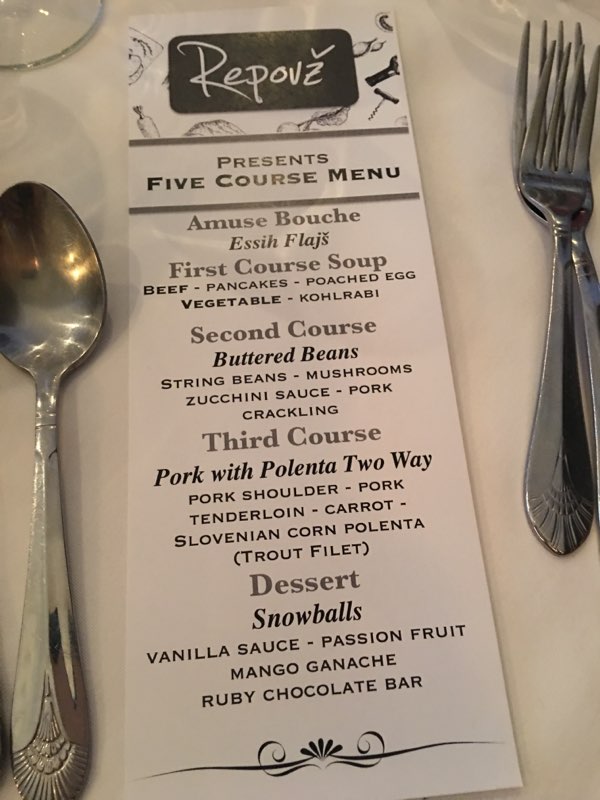 Repovž
PRESENTS
FIVE COURSE MENU
Amuse Bouche
Essih Flajš
First Course Soup
BEEF - PANCAKES - POACHED EGG
VEGETABLE - KOHLRABI
Second Course
Buttered Beans
STRING BEANS - MUSHROOMS
ZUCCHINI SAUCE - PORK
CRACKLING
Third Course
Pork with Polenta Two Way
PORK SHOULDER - PORK
TENDERLOIN - CARROT -
SLOVENIAN CORN POLENTA
(TROUT FILET)
Dessert
Snowballs
VANILLA SAUCE - PASSION FRUIT
MANGO GANACHE
RUBY CHOCOLATE BAR